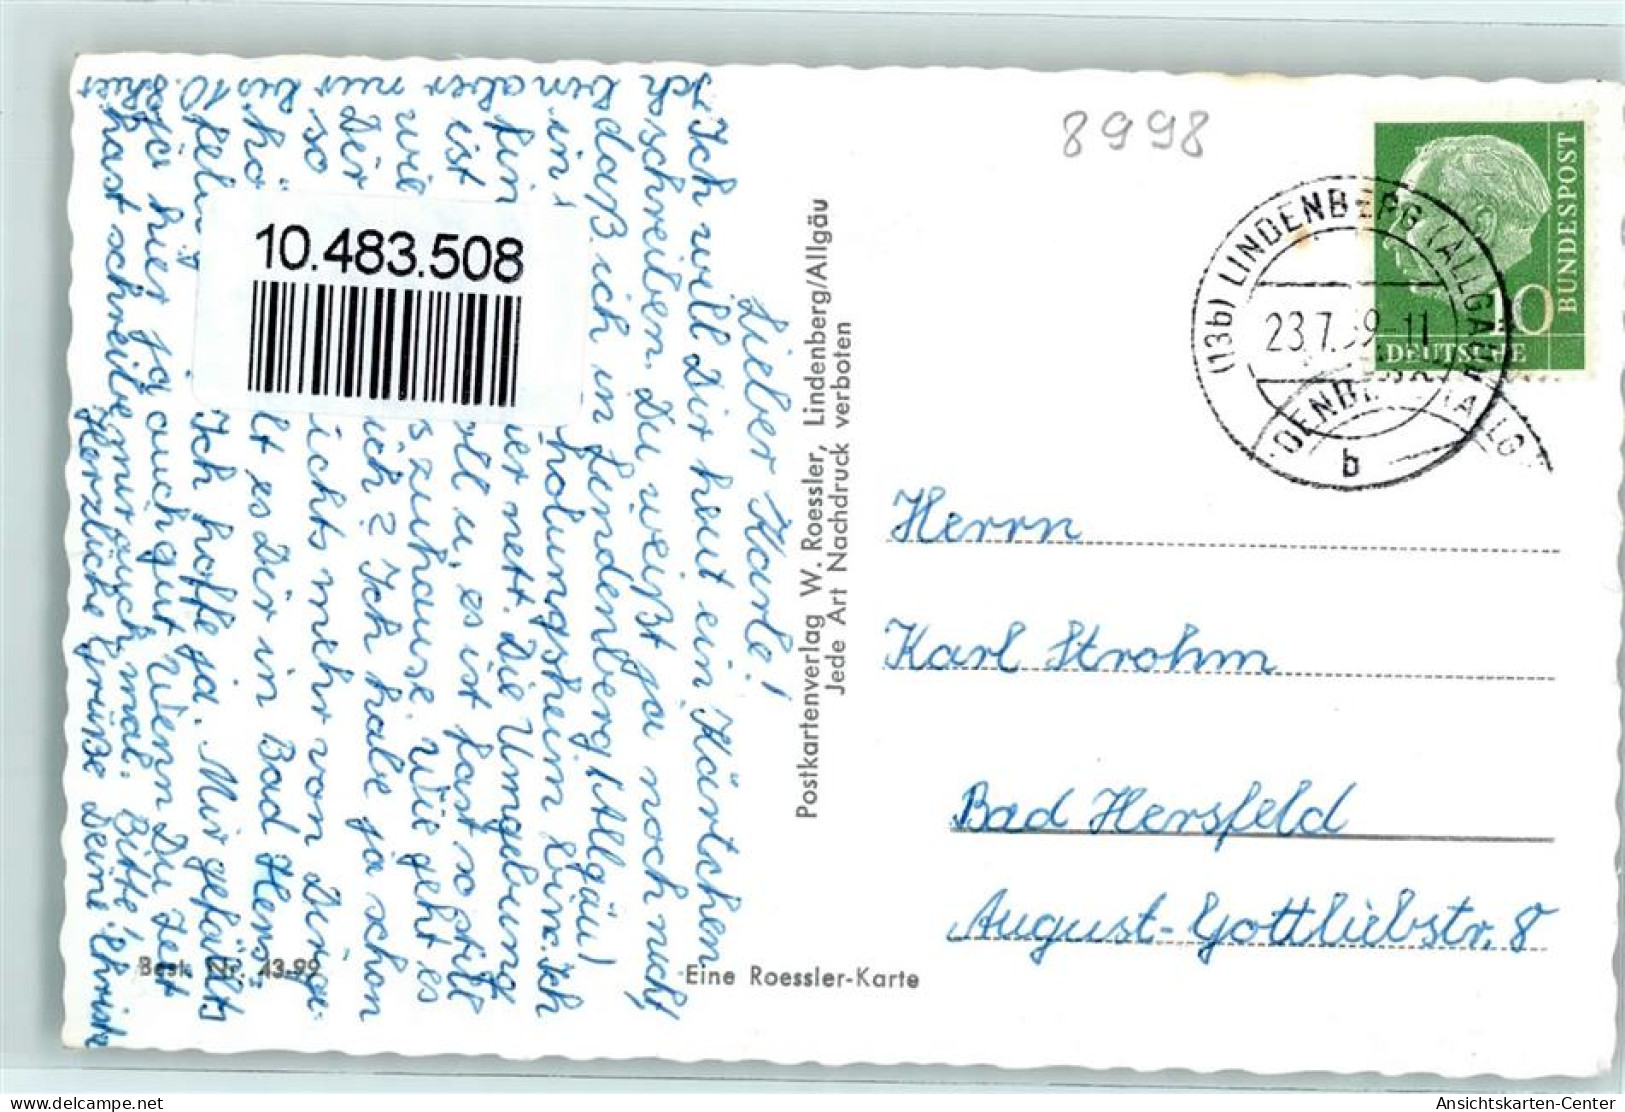 8998
BUNDESPOST
DEUTSCHE
(13b) LINDENBERG (ALLGÄU)
23.7.59-11
b
Herrn
Karl Strohm
Bad Hersfeld
August-Gottliebstr. 8
Postkartenverlag W. Roessler, Lindenberg/Allgäu
Jede Art Nachdruck verboten
Eine Roessler-Karte
Best. Nr. 43-99
10.483.508
Lieber Karle!
Ich will Dir heut ein Kärtchen
schreiben. Du weißt ja noch nicht,
daß ich in Lindenberg/Allgäu/
in holungsheim bin. Ich
bin aber nur bis 10.
ier nett. Die Umgebung
ist oll u. es ist fast so still
wie s zuhause. Wie geht es
Dir ich? Ich habe ja schon
so ichts mehr von Dir ge-
hö lt es Dir in Bad Hers-
feld Ich hoffe ja. Mir gefällts
ja hier ja auch gut. Wenn Du Zeit
hast schreibe mir auch mal. Bitte!
Herzliche Grüße Deine Christa
Ansichtskarten-Center
delcampe.net